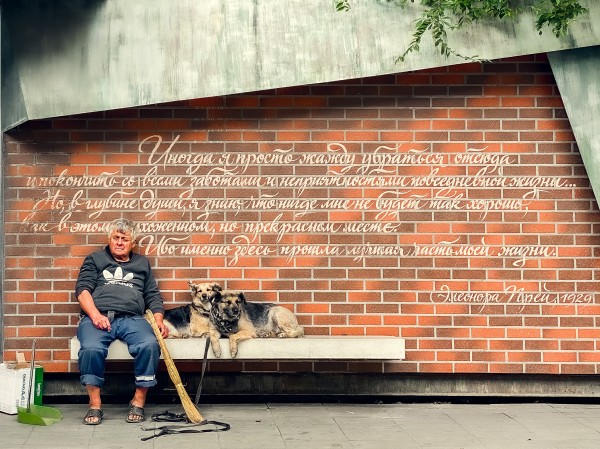 Иногда я просто жажду убраться отсюда
и покончить со всеми заботами и неприятностями повседневной жизни...
Но, в глубине души, я знаю, что нигде мне не будет так хорошо,
как в этом ухоженном, но прекрасном месте.
Ибо именно здесь прошла лучшая часть моей жизни.
(Элеонора Прей, 1929
adidas